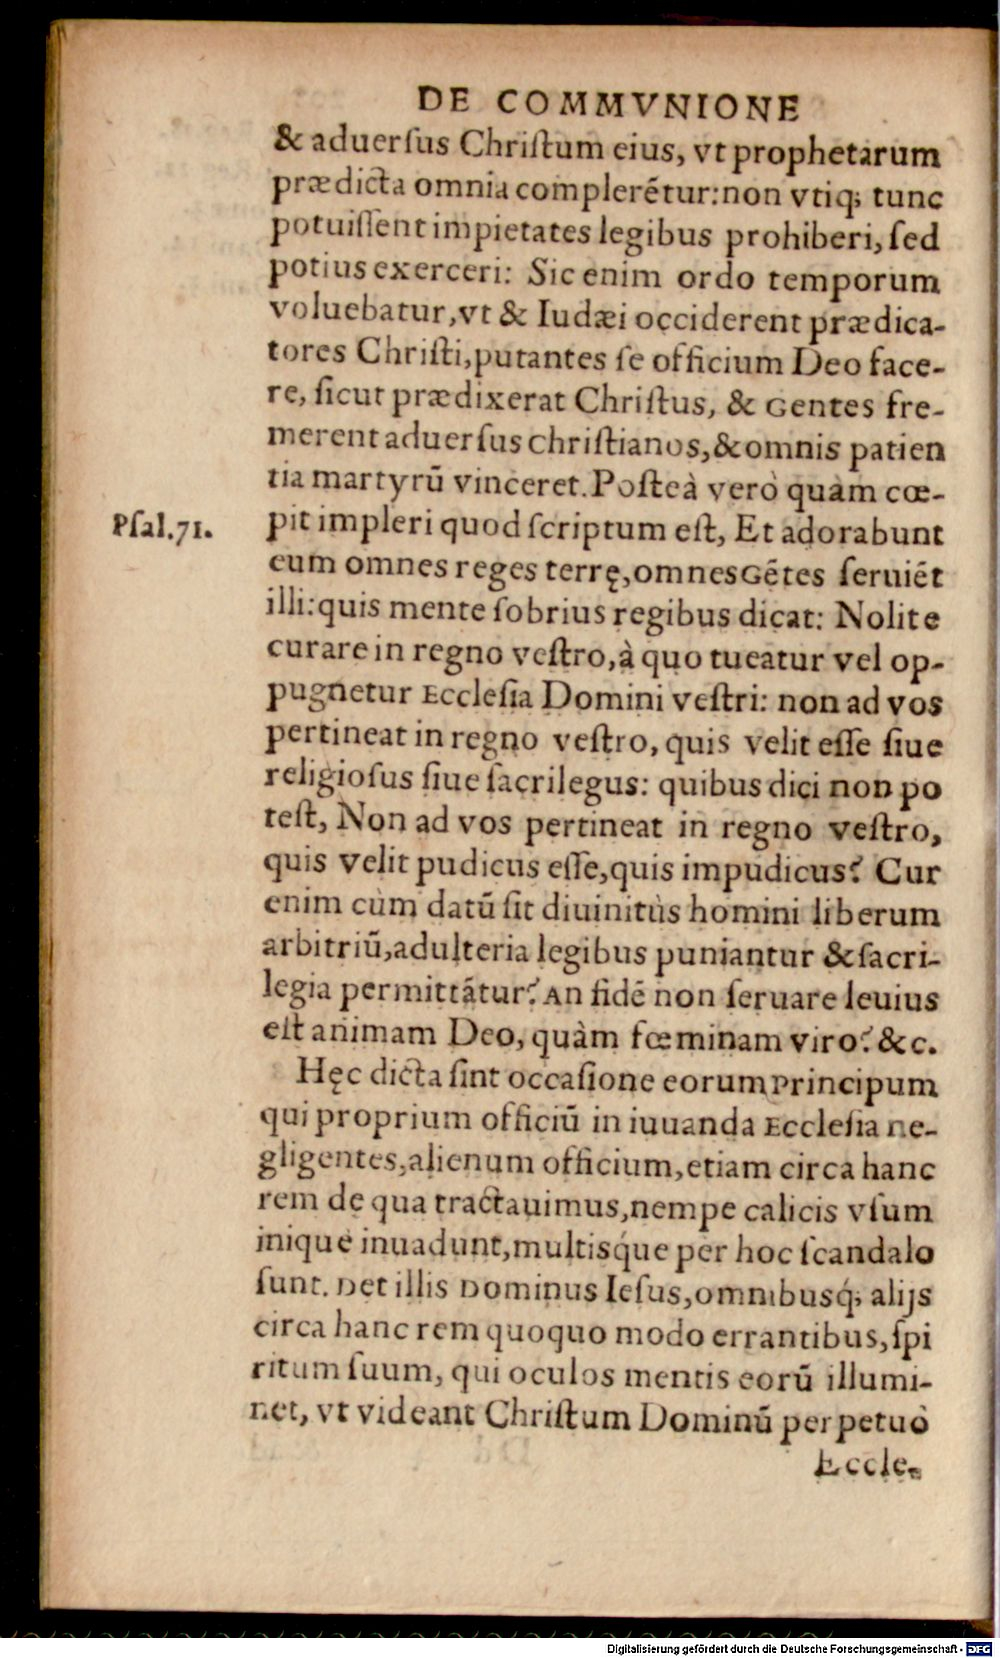 DE COMMVNIONE
& aduerſus Chriſtum eius, vt prophetarum
prædicta omnia complerētur: non vtiq; tunc
potuiſſent impietates legibus prohiberi, ſed
potius exerceri: Sic enim ordo temporum
voluebatur, vt & Iudæi occiderent prædica-
tores Chriſti, putantes ſe officium Deo face-
re, ſicut prædixerat Chriſtus, & Gentes fre-
merent aduerſus Chriſtianos, & omnis patien
tia martyrū vinceret. Poſteà verò quàm cœ-
Pſal. 71.
pit impleri quod ſcriptum eſt, Et adorabunt
eum omnes reges terrę, omnes Gētes ſeruiēt
illi: quis mente ſobrius regibus dicat: Nolite
curare in regno veſtro, à quo tueatur vel op-
pugnetur Eccleſia Domini veſtri: non ad vos
pertineat in regno veſtro, quis velit eſſe ſiue
religioſus ſiue ſacrilegus: quibus dici non po
teſt, Non ad vos pertineat in regno veſtro,
quis velit pudicus eſſe, quis impudicus? Cur
enim cùm datū ſit diuinitùs homini liberum
arbitriū, adulteria legibus puniantur & ſacri-
legia permittātur? An fidē non ſeruare leuius
eſt animam Deo, quàm fœminam viro? &c.
Hęc dicta ſint occaſione eorum Principum
qui proprium officiū in iuuanda Eccleſia ne-
gligentes, alienum officium, etiam circa hanc
rem de qua tractauimus, nempe calicis vſum
iniquè inuadunt, multisq́ue per hoc ſcandalo
ſunt. Det illis Dominus Ieſus, omnibusq́; alijs
circa hanc rem quoquo modo errantibus, ſpi
ritum ſuum, qui oculos mentis eorū illumi-
net, vt videant Chriſtum Dominū perpetuò
Eccle-
Digitalisierung gefördert durch die Deutsche Forschungsgemeinschaft - DFG